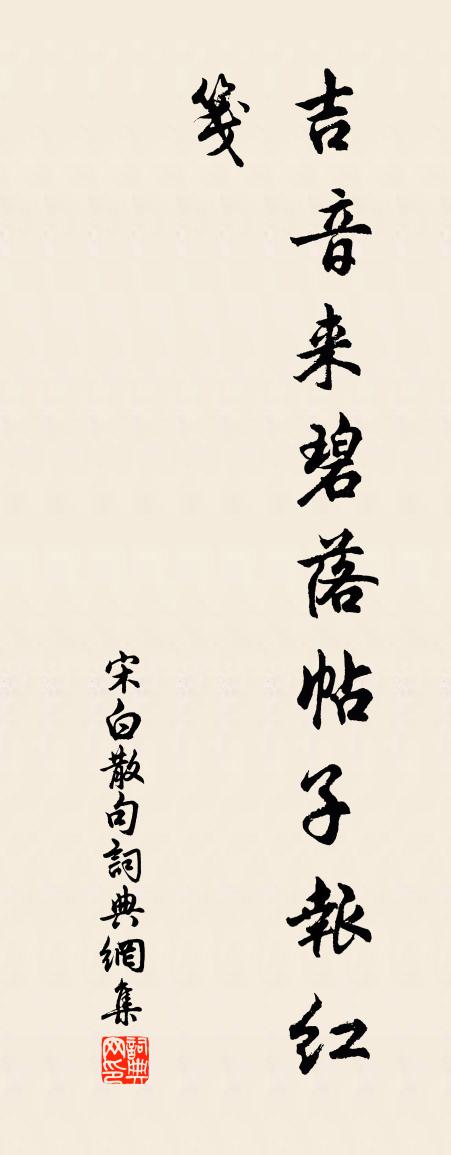 吉音来碧落帖子報红
箋
宋白散句詞典網集
詞典网印